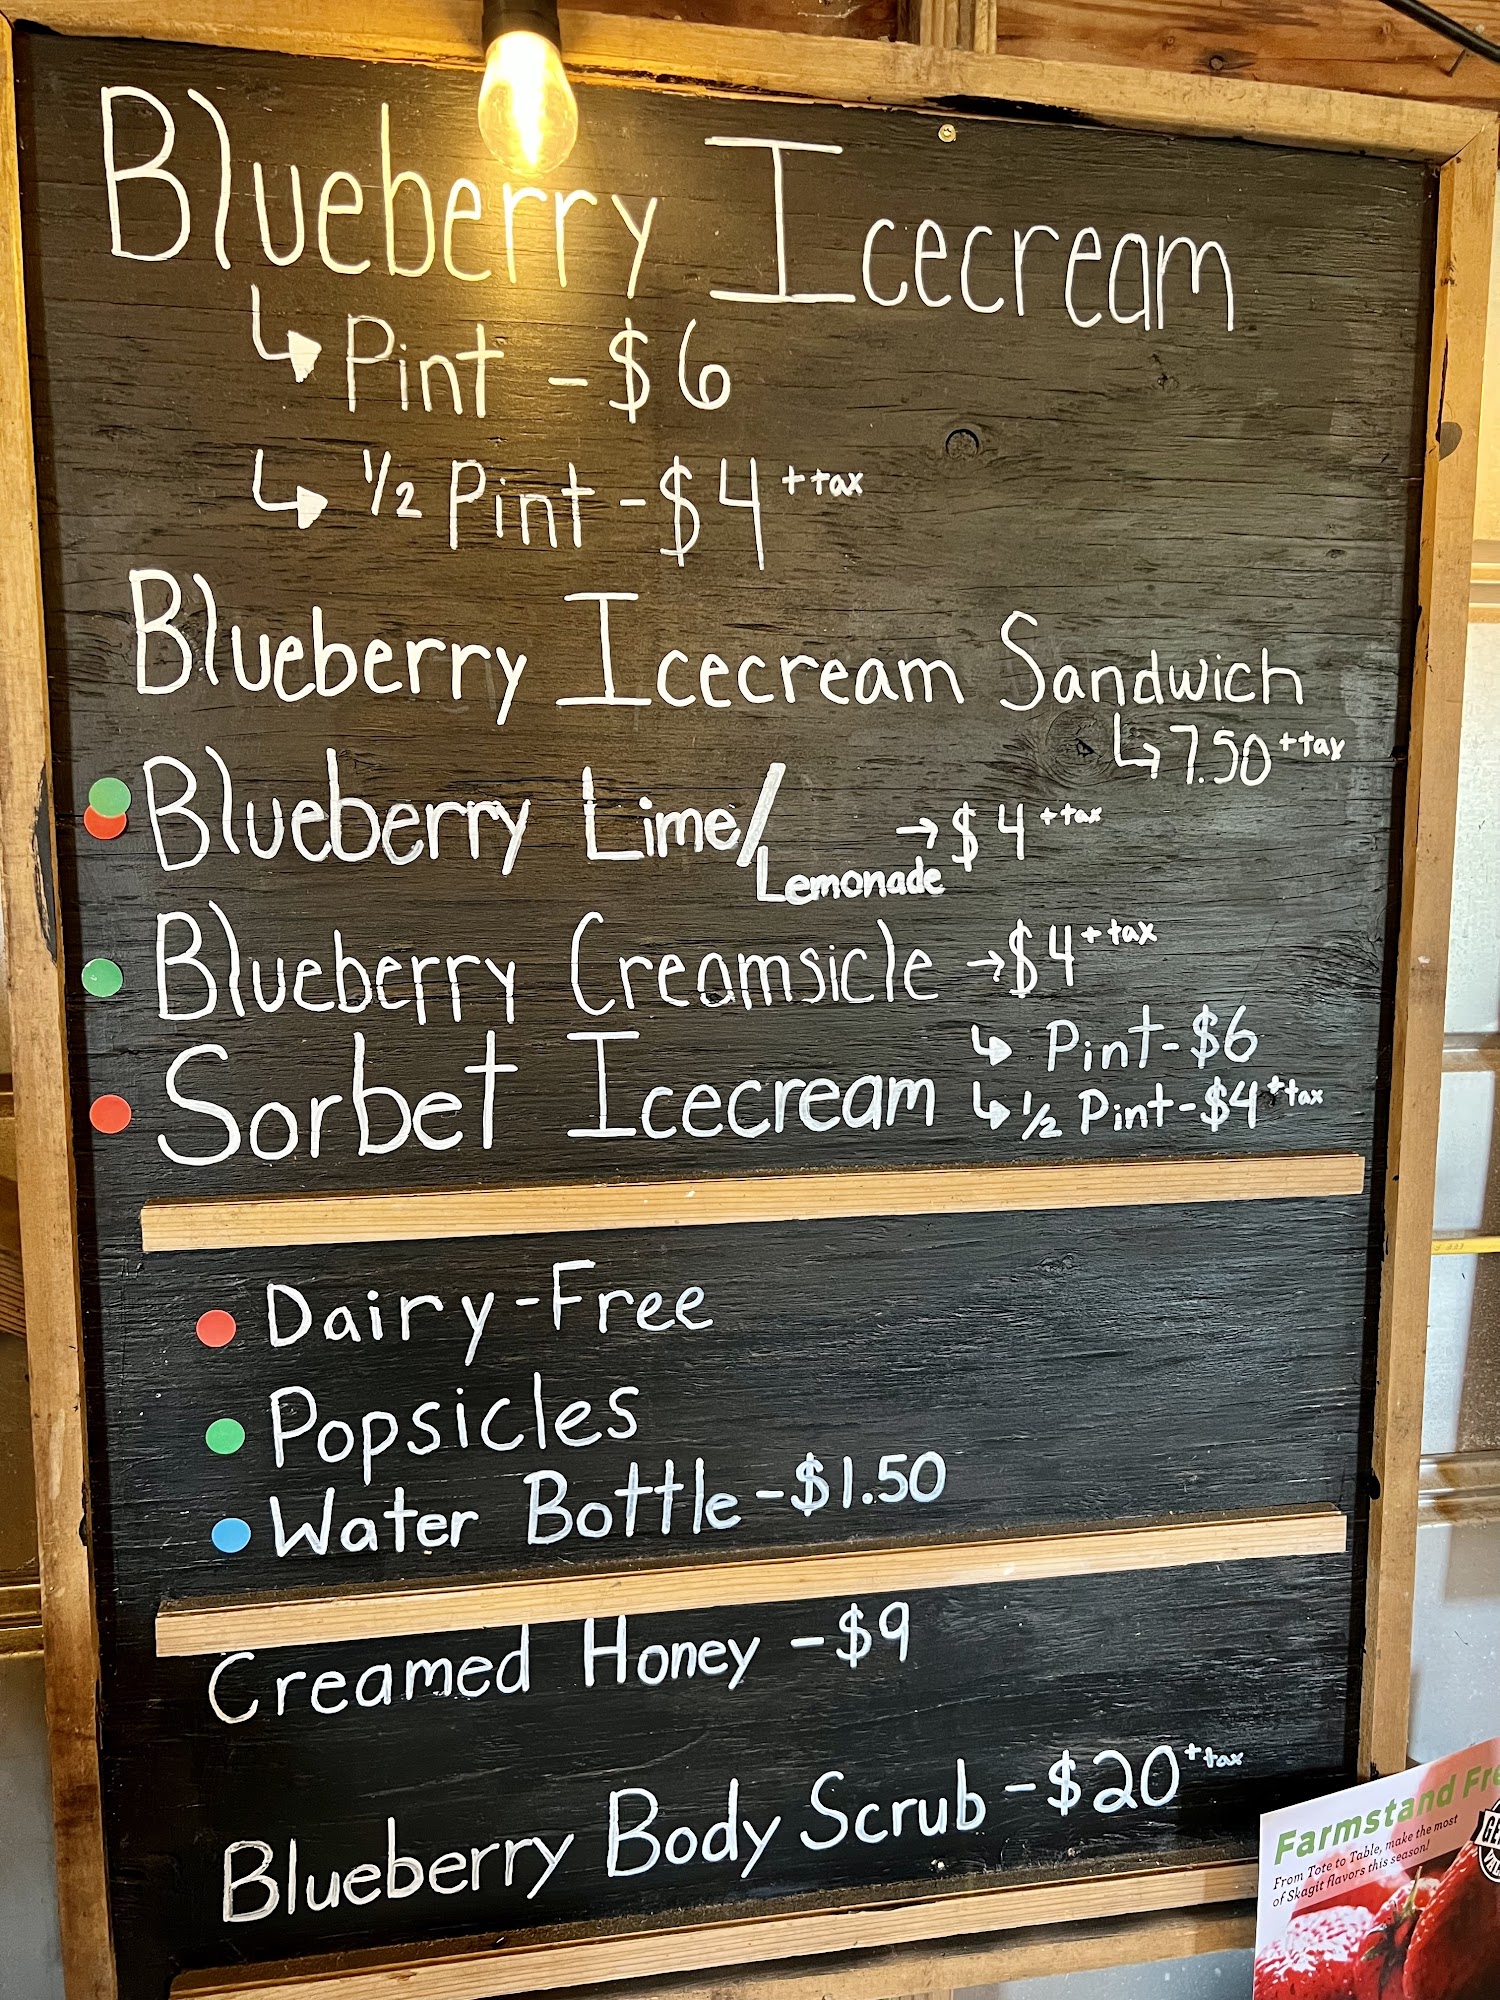 Blueberry Icecream
↳ Pint - $6
↳ 1/2 Pint - $4 + tax
Blueberry Icecream Sandwich
↳ 7.50 + tax
Blueberry Lime/ Lemonade → $4 + tax
Blueberry Creamsicle → $4 + tax
Sorbet Icecream ↳ Pint - $6
↳ 1/2 Pint - $4 + tax
Dairy-Free
Popsicles
Water Bottle - $1.50
Creamed Honey - $9
Blueberry Body Scrub - $20 + tax
Farmstand
From Tote to Table, make the most
of Skagit flavors this season!